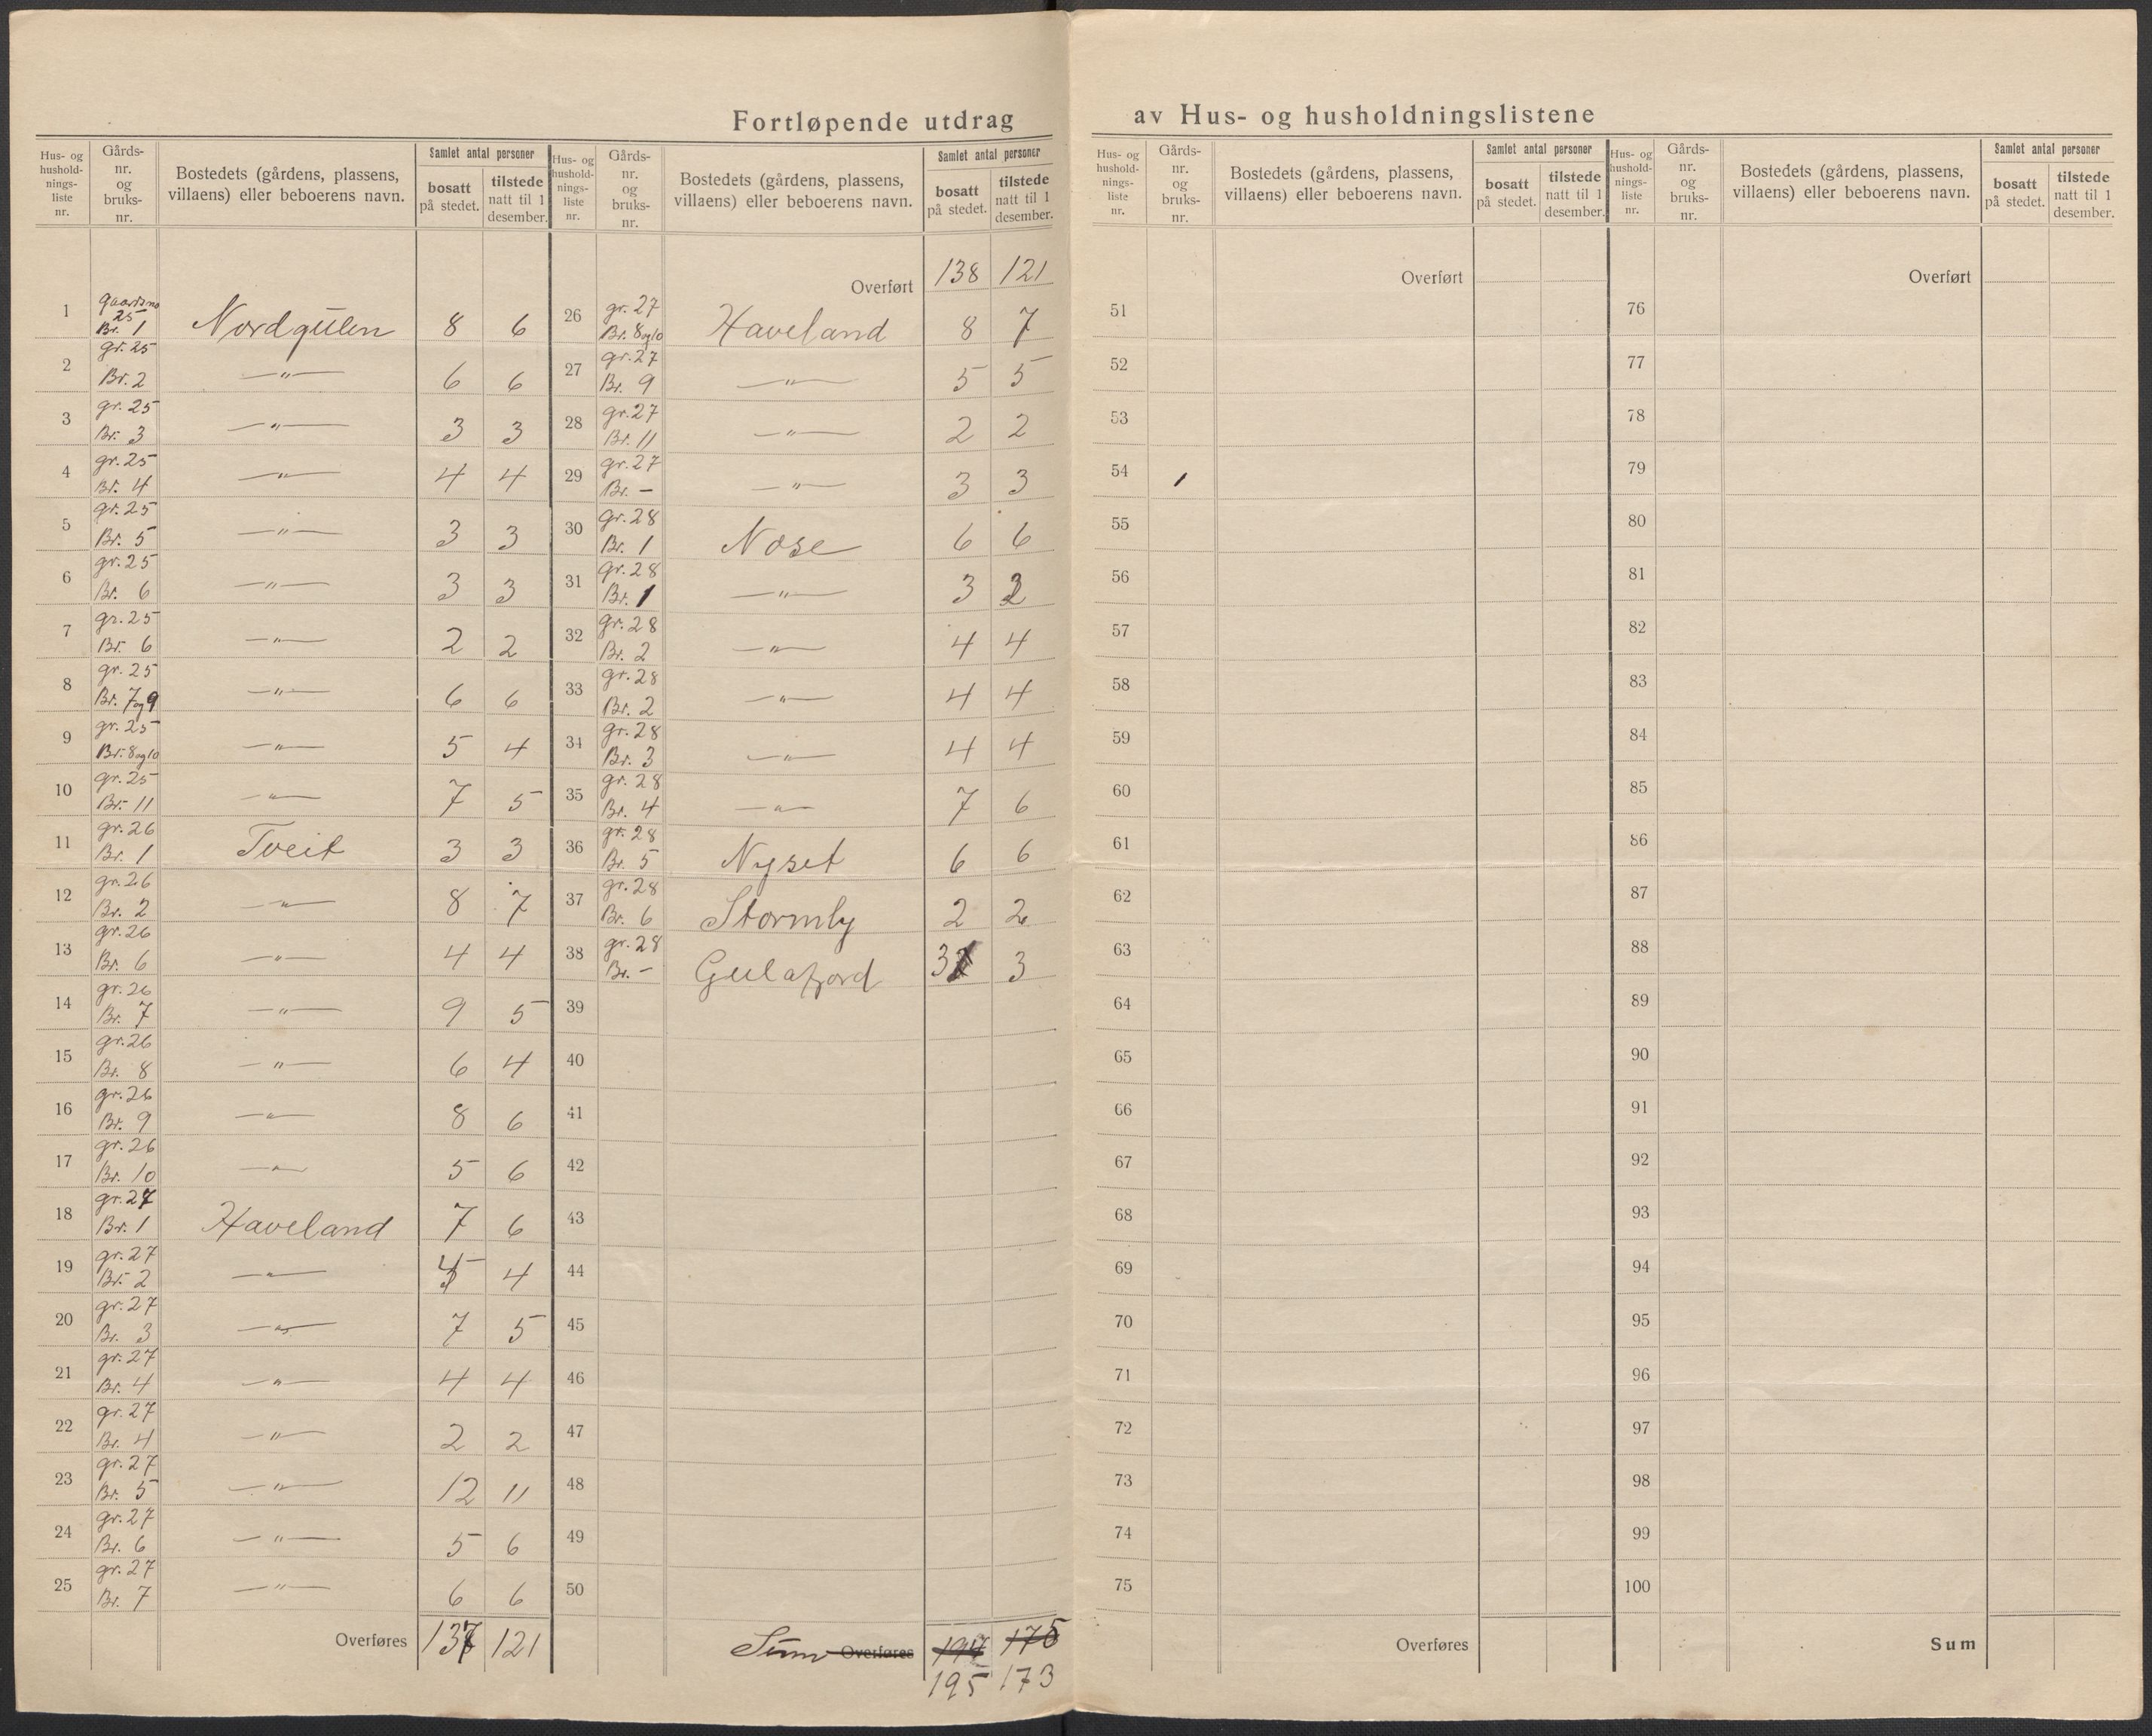 Fortløpende utdrag av Hus- og husholdningslistene
Hus- og hushold-nings-liste nr. | Gårds-nr. og bruks-nr. | Bostedets (gårdens, plassens, villaens) eller beboerens navn. | Samlet antal personer | bosatt på stedet. | tilstede natt til 1 desember.
1 gaardsno 25 Br. 1 Nordgulen 8 6
2 gr. 25 Br. 2 —"— 6 6
3 gr. 25 Br. 3 —"— 3 3
4 gr. 25 Br. 4 —"— 4 4
5 gr. 25 Br. 5 —"— 3 3
6 gr. 25 Br. 6 —"— 3 3
7 gr. 25 Br. 6 —"— 2 2
8 gr. 25 Br. 7 og 9 —"— 6 6
9 gr. 25 Br. 8 og 10 —"— 5 4
10 gr. 25 Br. 11 —"— 7 5
11 gr. 26 Br. 1 Tveit 3 3
12 gr. 26 Br. 2 —"— 8 7
13 gr. 26 Br. 6 —"— 4 4
14 gr. 26 Br. 7 —"— 9 5
15 gr. 26 Br. 8 —"— 6 4
16 gr. 26 Br. 9 —"— 8 6
17 gr. 26 Br. 10 —"— 5 6
18 gr. 27 Br. 1 Haveland 7 6
19 gr. 27 Br. 2 —"— 4
20 gr. 27 Br. 3 —"— 7 5
21 gr. 27 Br. 4 —"— 4 4
22 gr. 27 Br. 4 —"— 2 2
23 gr. 27 Br. 5 —"— 12 11
24 gr. 27 Br. 6 —"— 5 6
25 gr. 27 Br. 7 —"— 6 6
Overføres 121
Hus- og hushold-nings-liste nr. | Gårds-nr. og bruks-nr. | Bostedets (gårdens, plassens, villaens) eller beboerens navn. | Samlet antal personer | bosatt på stedet. | tilstede natt til 1 desember.
Overført 138 121
26 gr. 27 Br. 8 og 10 Haveland 8 7
27 gr. 27 Br. 9 —"— 5 5
28 gr. 27 Br. 11 —"— 2 2
29 gr. 27 Br. - —"— 3 3
30 gr. 28 Br. 1 Nose 6 6
31 gr. 28 Br. 1 —"— 3
32 gr. 28 Br. 2 —"— 4 4
33 gr. 28 Br. 2 —"— 4 4
34 gr. 28 Br. 3 —"— 4 4
35 gr. 28 Br. 4 —"— 7 6
36 gr. 28 Br. 5 Nyset 6 6
37 gr. 28 Br. 6 Stormly 2 2
38 gr. 28 Br. - Gulafjord 3 3
39
40
41
42
43
44
45
46
47
48
49
50
Sum Overføres 175
195 173
Hus- og hushold-nings-liste nr. | Gårds-nr. og bruks-nr. | Bostedets (gårdens, plassens, villaens) eller beboerens navn. | Samlet antal personer | bosatt på stedet. | tilstede natt til 1 desember.
Overført
51
52
53
54
55
56
57
58
59
60
61
62
63
64
65
66
67
68
69
70
71
72
73
74
75
Overføres
Hus- og hushold-nings-liste nr. | Gårds-nr. og bruks-nr. | Bostedets (gårdens, plassens, villaens) eller beboerens navn. | Samlet antal personer | bosatt på stedet. | tilstede natt til 1 desember.
Overført
76
77
78
79
80
81
82
83
84
85
86
87
88
89
90
91
92
93
94
95
96
97
98
99
100
Sum